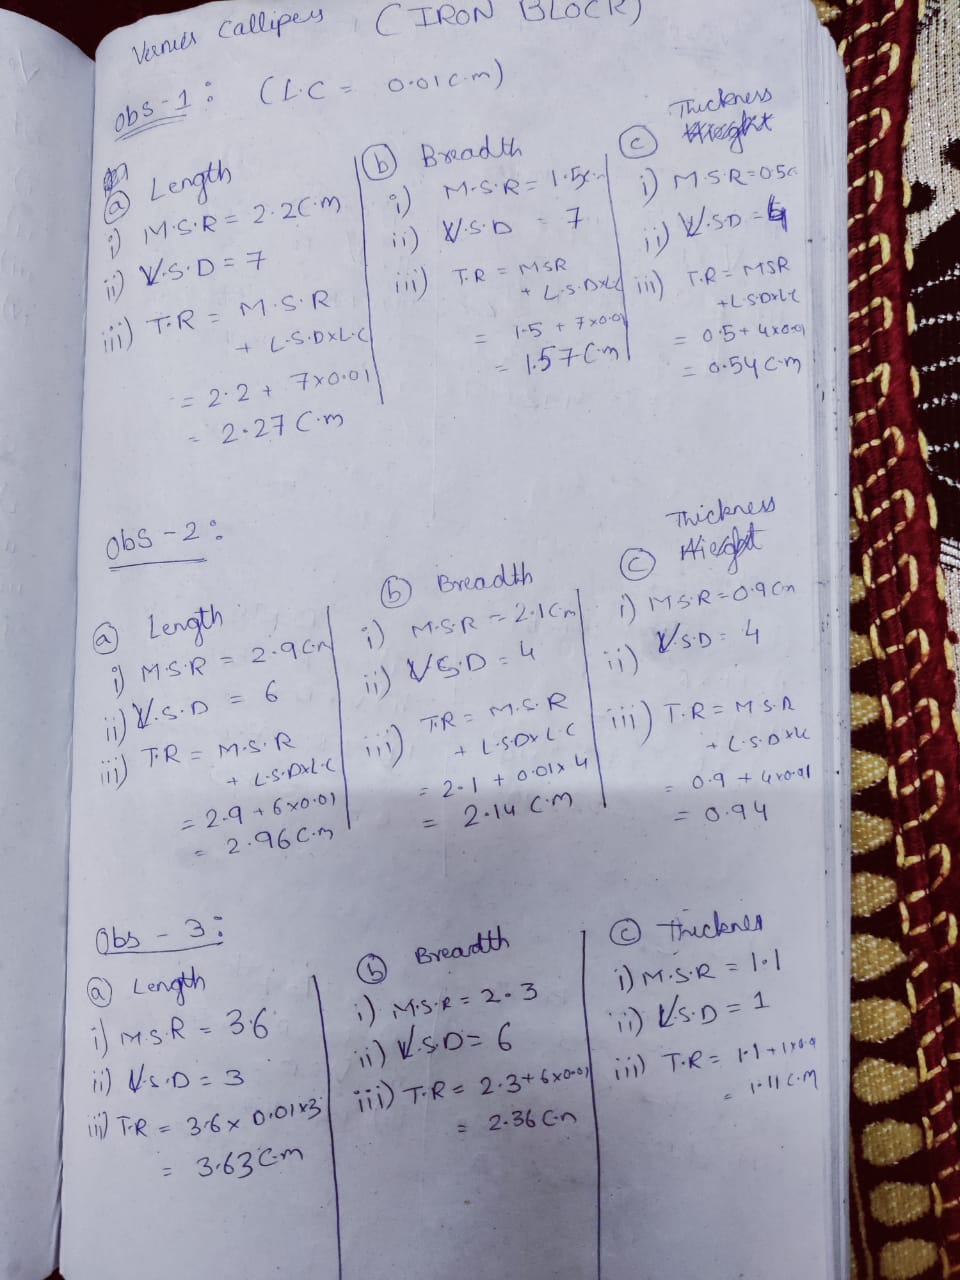 Vernier Callipers (IRON BLOCK)
Obs-1: (L.C = 0.01c.m)
(a) Length
i) M.S.R = 2.2C.m
ii) V.S.D = 7
iii) T.R = M.S.R
+ L.S.DxL.C
= 2.2 + 7x0.01
= 2.27 C.m
(b) Breadth
i) M.S.R = 1.5c
ii) V.S.D = 7
iii) T.R = MSR
+ L.S.DxLC
= 1.5 + 7x0.01
= 1.57 C.m
(c) Thickness
i) M.S.R = 0.5c
ii) V.S.D = 4
iii) T.R = MSR
+L.S.DxLC
= 0.5 + 4x0.01
= 0.54 C.m
Obs - 2:
(a) Length
i) M.S.R = 2.9 Cm
ii) V.S.D = 6
iii) T.R = M.S.R
+ L.S.DxL.C
= 2.9 + 6x0.01
= 2.96 C.m
(b) Breadth
i) M.S.R = 2.1 Cm
ii) V.S.D = 4
iii) T.R = M.S.R
+ L.S.Dx L.C
= 2.1 + 0.01x 4
= 2.14 C.m
(c) Thickness
Hieght
i) M.S.R = 0.9 Cm
ii) V.S.D = 4
iii) T.R = M.S.R
+ L.S.DxLC
= 0.9 + 4x0.01
= 0.94
Obs - 3:
(a) Length
i) M.S.R = 3.6
ii) V.S.D = 3
iii) T.R = 3.6 x 0.01x3
= 3.63 C.m
(b) Breadth
i) M.S.R = 2.3
ii) V.S.D = 6
iii) T.R = 2.3 + 6x0.01
= 2.36 C.m
(c) Thicknes
i) M.S.R = 1.1
ii) V.S.D = 1
iii) T.R = 1.1 + 1x0.0
= 1.11 C.M